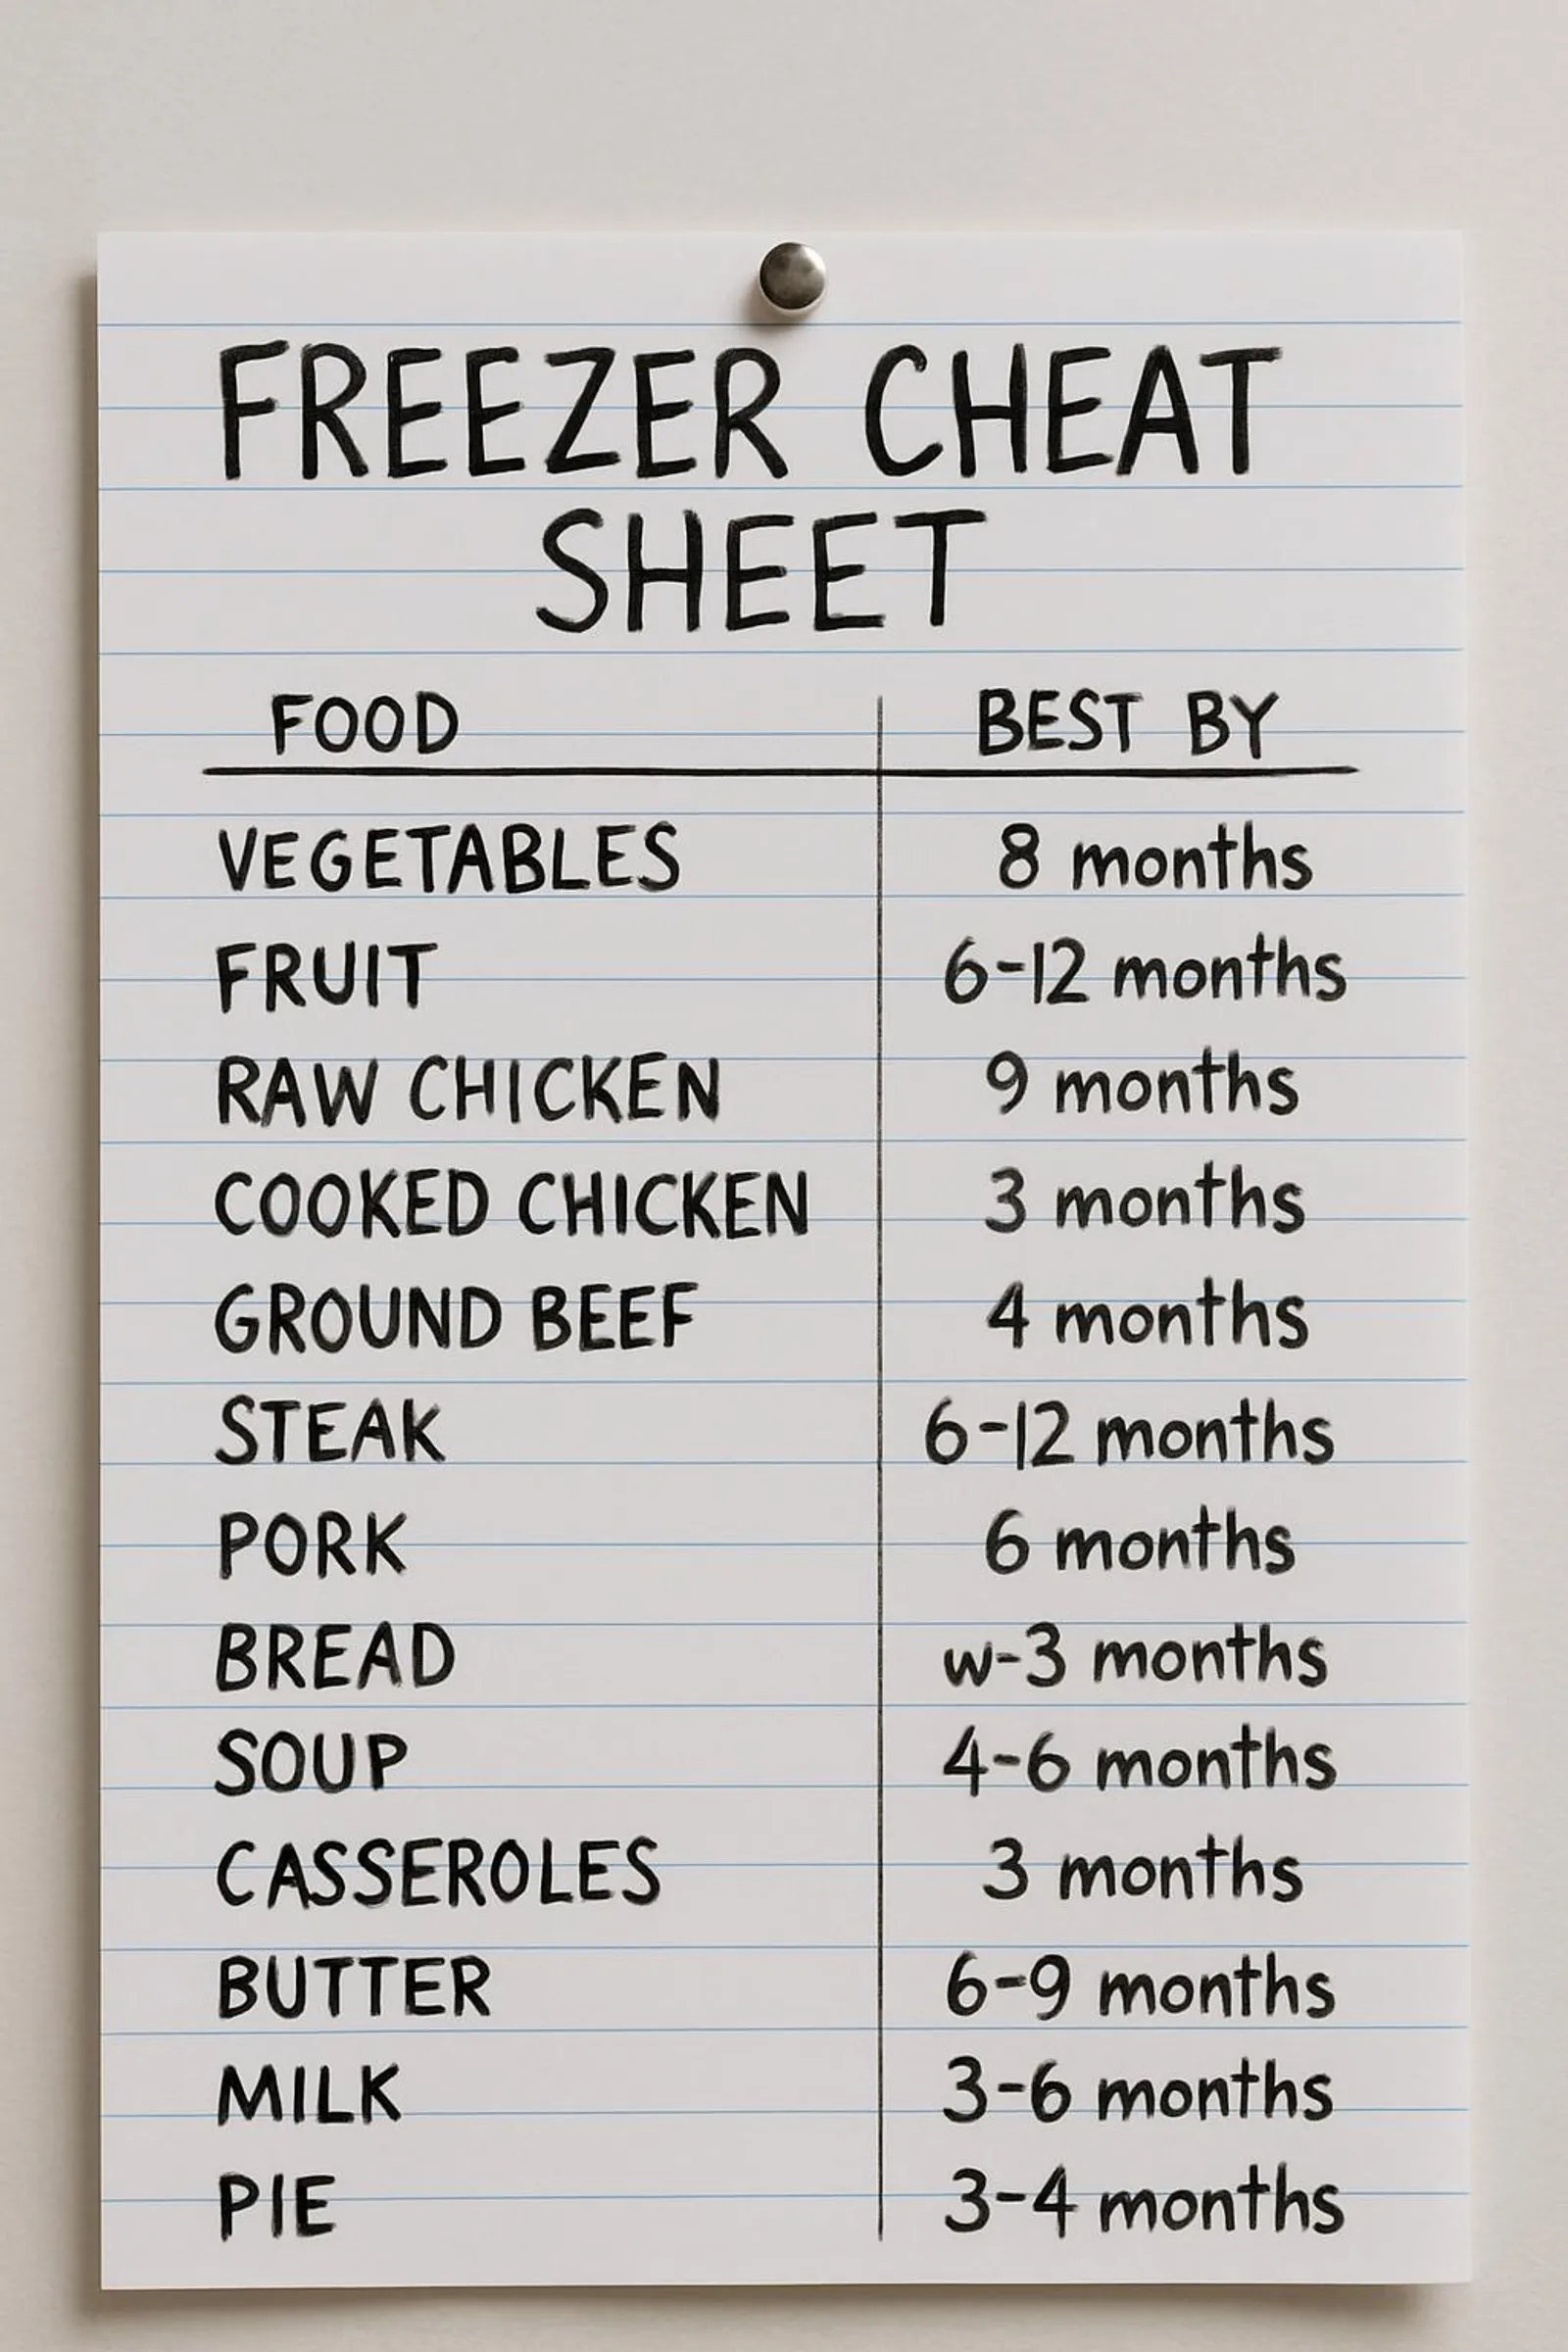 FREEZER CHEAT
SHEET
FOOD BEST BY
VEGETABLES 8 months
FRUIT 6-12 months
RAW CHICKEN 9 months
COOKED CHICKEN 3 months
GROUND BEEF 4 months
STEAK 6-12 months
PORK 6 months
BREAD w-3 months
SOUP 4-6 months
CASSEROLES 3 months
BUTTER 6-9 months
MILK 3-6 months
PIE 3-4 months